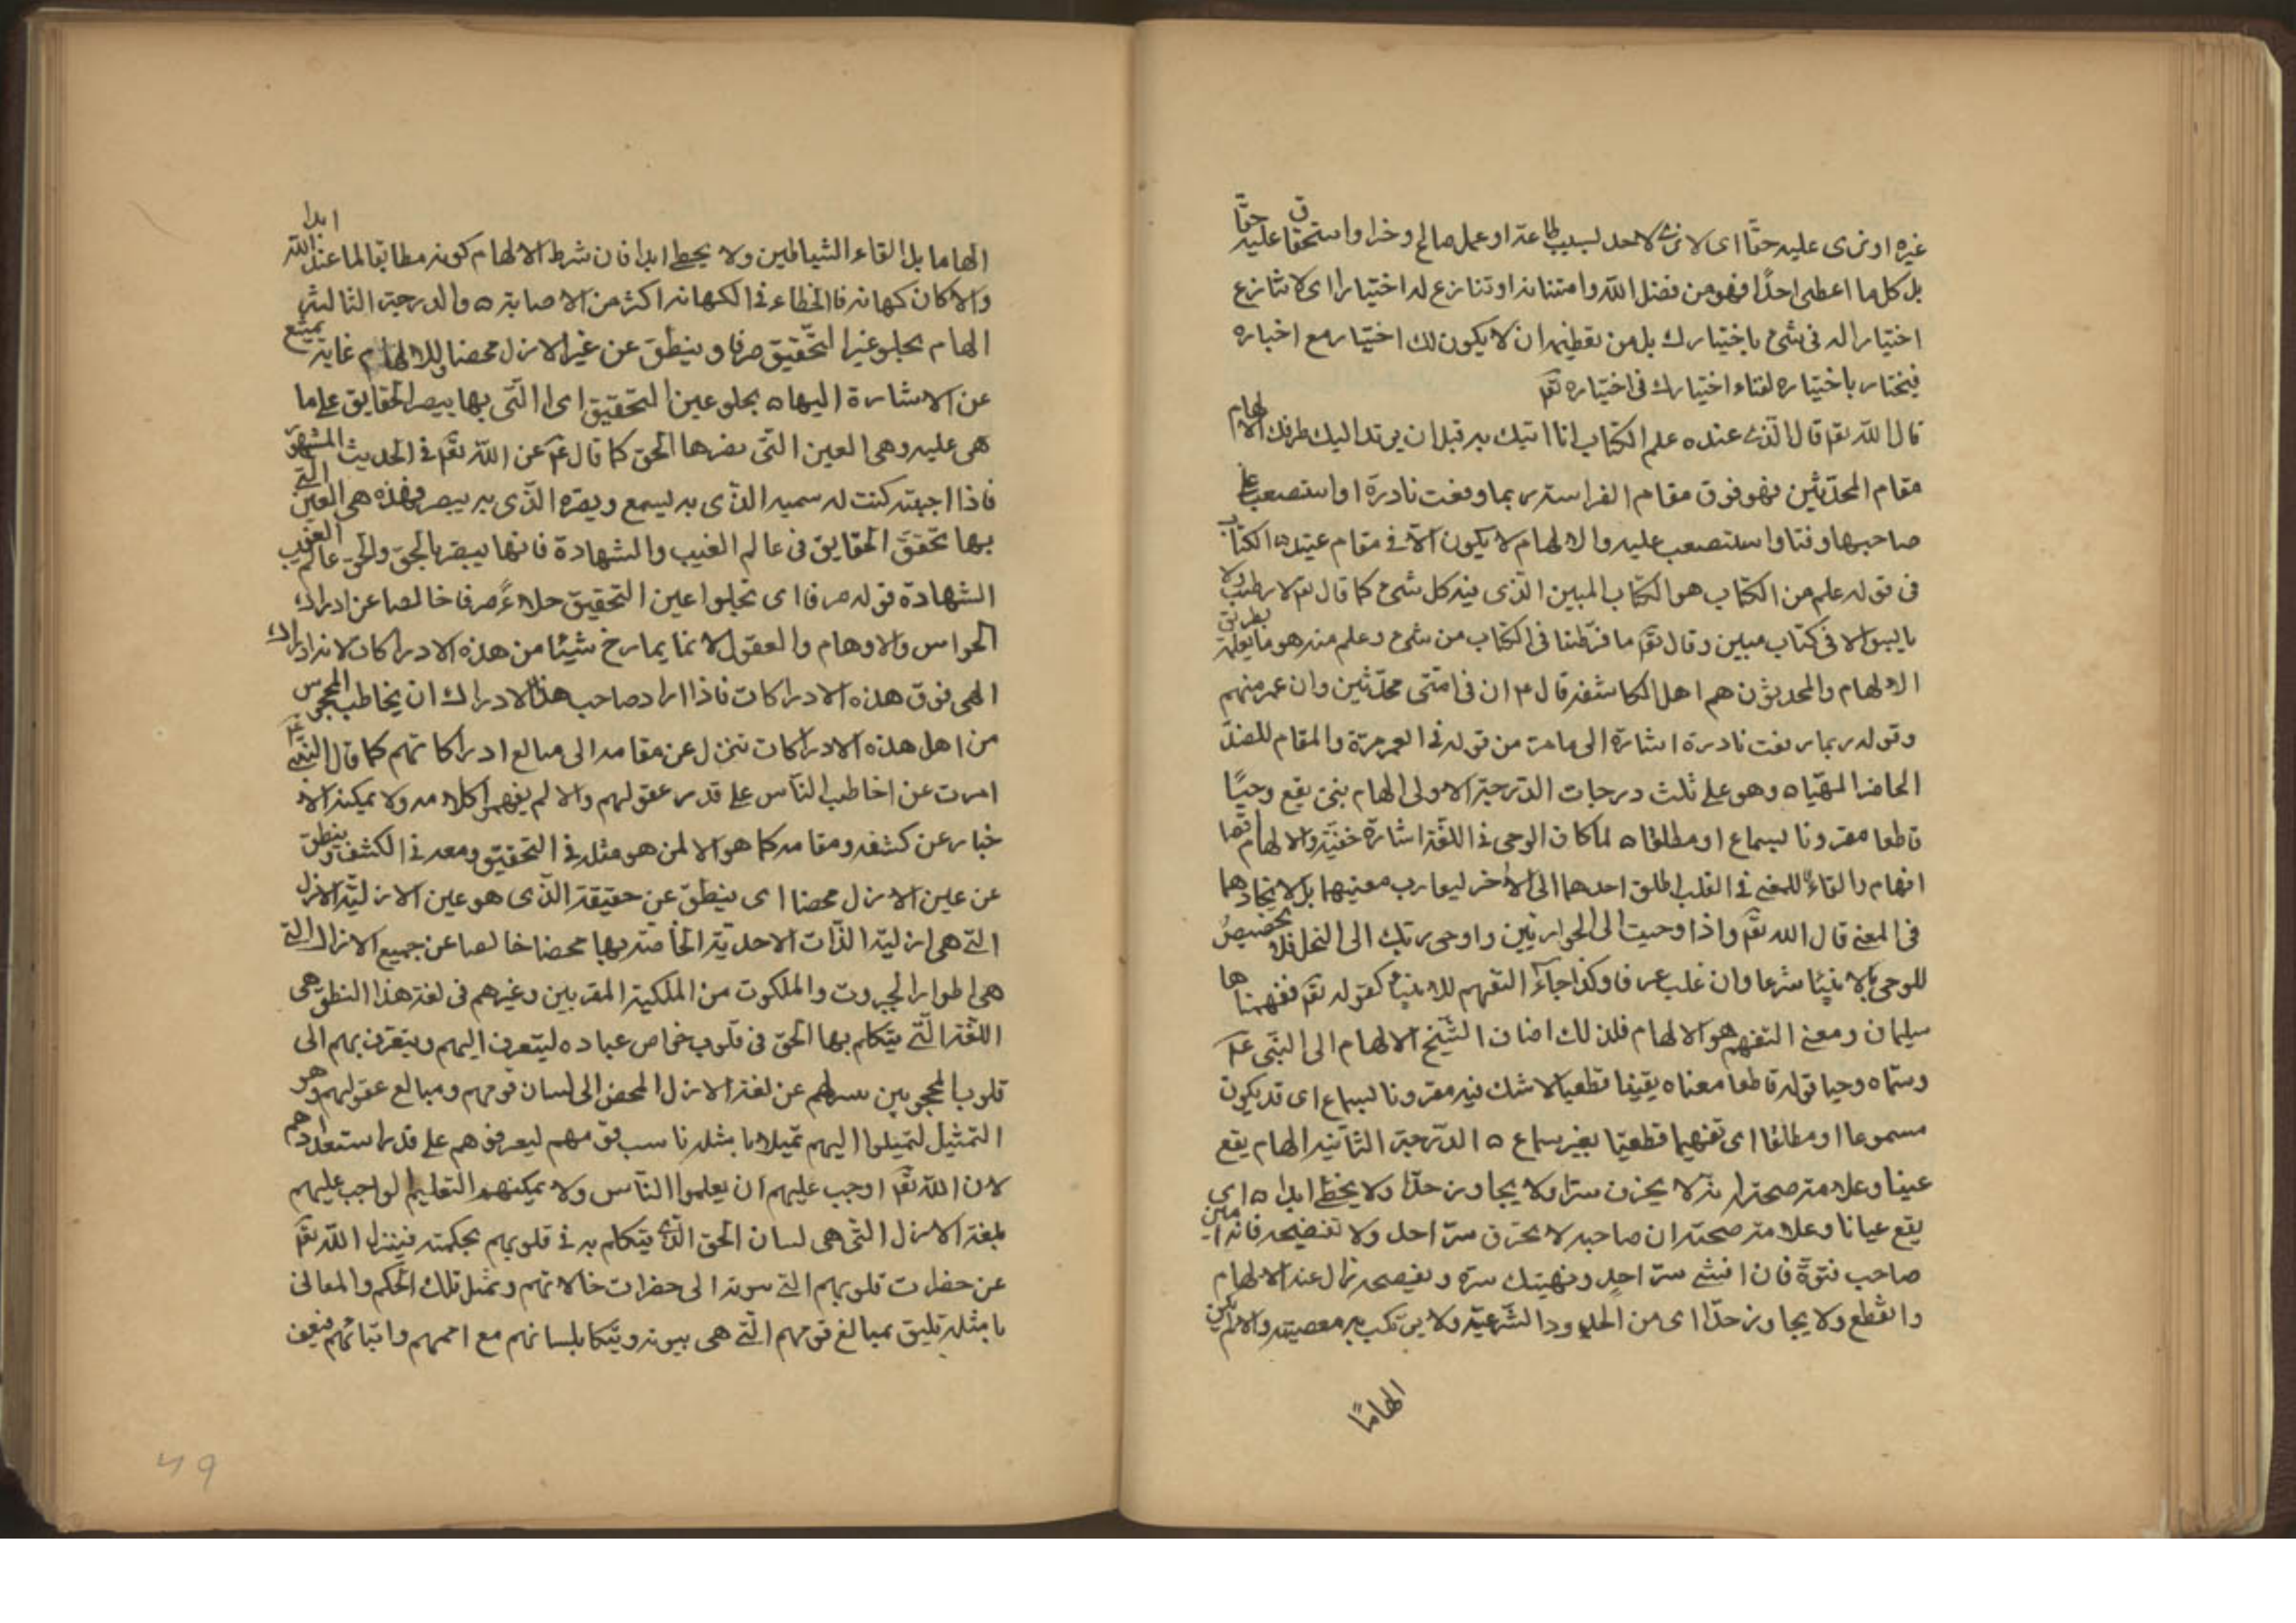 غيره او ترى عليه حقا اى لا ترى لاحد بسبب طاعة او عمل صالح وخدا واستحقاق عليه حقا
بل كل ما اعطى احدًا فهو من فضل الله وامتنانه او تنازع له اختيارا اى لا تنازع
اختيارا له فى شئ باختيارك بل من تعظيمه ان لا يكون لك اختيار مع اخباره
فيختار باختياره لفناء اختيارك فى اختياره تعم
قال الله تعم قال الذى عنده علم الكتاب انا اتيك به قبل ان يرتد اليك طرفك الالهام
مقام المحدّثين فهو فوق مقام الفراسة ربما وقعت نادرة او استصعب على
صاحبها وقتا واستصعب عليه والالهام لا يكون الا فى مقام عتيد ه الكتاب
فى قوله علم من الكتاب هو الكتاب المبين الذى فيه كل شئ كما قال تعم لا رطب ولا
يابس الا فى كتاب مبين وقال تعم ما فرّطنا فى الكتاب من شئ وعلم منه هو ما يعلمه بطريق
الالهام والمحدثون هم اهل المكاشفة قال ء ان فى امتى محدّثين وان عمر منهم
وقوله ربما وقعت نادرة اشارة الى ما مر من قوله فى العمر مرة والمقام للعند
الحاضر المهيّا ه وهو على ثلث درجات الدرجة الاولى الهام نبى يقع وحيًا
قاطعا مقرونا بسماع او مطلقا ه لما كان الوحى فى اللغة اشارة خفيّة والالهام ايقا
افهام والقاء للمعنى فى القلب اطلق احدهما الى الاخر ليقارب معنيهما بل لاتحادهما
فى المعنى قال الله تعم واذ اوحيت الى الحواريين واوحى ربك الى النحل فلا تخصيص
للوحى بالانبيا شرعا وان غلب عرفا وكذا جآء التفهم للانبيا كقوله تعم ففهمناها
سليمان ومعنى التفهيم هو الالهام فلذلك اضاف الشيخ الالهام الى النبى عم
وسماه وحيا قوله قاطعا معناه يقينا قطعيا لا شك فيه مقرونا بسماع اى قد يكون
مسموعا او مطلقا اى تفهيما قطعيّا بغير سماع ه الدرجة الثانيه الهام يقع
عينا وعلامة صحته انه لا يخرق سترا ولا يجاوز حدّا ولا يخطئ ابدا ه اى
يقع عيانا وعلامة صحته ان صاحبه لا يخرق ستر احد ولا تفضيحه فانه امين
صاحب فتوّة فان افشى ستر احد وتهتك ستره ويفضحه زال عنه الالهام
وانقطع ولا يجاوز حدّا اى من الحدود الشرعيّة ولا يرتكب به معصيته والا لم يكن
الهامًا
الهاما بل القاء الشياطين ولا يخطى ابدا فان شرط الالهام كونه مطابقا لما عند الله ابدا
والا كان كهانه فالخطاء فى الكهانه اكثر من الاصابة ه والدرجة الثالثة
الهام يجلو عين التحقيق صرفا وينطق عن عين الازل محضا وللالهام غاية يمتنع
عن الاشارة اليها ه يجلو عين التحقيق اى التى بها يبصر الحقايق على ما
هى عليه وهى العين التى بصرها الحق كما قال عم عن الله تعم فى الحديث المشهور
فاذا احببته كنت له سمعه الذى به يسمع وبصره الذى به يبصر فهذه هى العين التى
بها تحقق الحقايق فى عالم الغيب والشهادة فانها يبصر بالحق والحق عالم الغيب
الشهادة قوله صرفا اى تجلوا عين التحقيق جلاءً صرفا خالصا عن ادراك
الحواس والاوهام والعقول لا نما يمازج شيئا من هذه الادراكات لانه ادراك
الهى فوق هذه الادراكات فاذا اراد صاحب هذا الادراك ان يخاطب المحجوبين
من اهل هذه الادراكات تنزل عن مقامه الى مبالع ادراكاتهم كما قال النبى عم
امرت عن اخاطب الناس على قدر عقولهم والا لم يفهموا كلامه ولا يمكنه الا
خبار عن كشفه ومقامه كما هو الا لمن هو مثله فى التحقيق ومعه فى الكشف وينطق
عن عين الازل محضا اى ينطق عن حقيقة الذى هو عين الازليّة الازل
التى هى ازليّة الذات الاحديّة الخاصة بها محضا خالصا عن جميع الازال التى
هى اطوار الجبروت والملكوت من الملكية المقربين وغيرهم فى لغة هذا النطق هى
اللغة الّتى يتكلم بها الحق فى قلوب خواص عباده ليتعرف اليهم ويتعرف بهم الى
قلوب المحجوبين بسرلهم عن لغة الازل المحض الى لسان قومهم ومبالع عقولهم وهو
التمثيل لتميلوا اليهم تميلا با مثله ناسب قومهم ليعرفوهم على قدر استعدادهم
لان الله تعم اوجب عليهم ان يعلموا الناس ولا يمكنهم التعليم الواجب عليهم
بلغة الازل التى هى لسان الحق الذى يتكلم به فى قلوبهم بحكمته فينزل الله تعم
عن حضرات قلوبهم التى سوته الى حضرات خالاتهم وتمثل تلك الحكم والمعانى
بامثله تليق بمبالغ قومهم التى هى بيونه ويتكا بلسانهم مع اممهم واتباعهم فيعرف
49